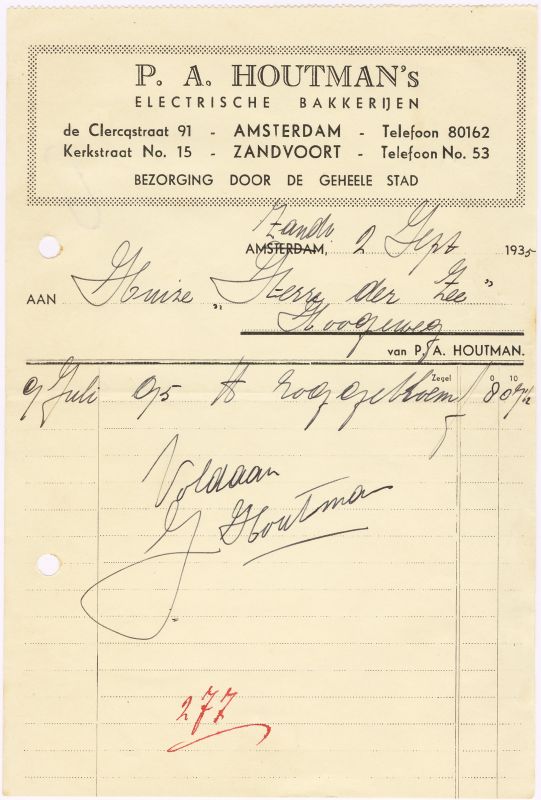 P. A. HOUTMAN's
ELECTRISCHE BAKKERIJEN
de Clercqstraat 91 - AMSTERDAM - Telefoon 80162
Kerkstraat No. 15 - ZANDVOORT - Telefoon No. 53
BEZORGING DOOR DE GEHEELE STAD
Zandv.
AMSTERDAM, 2 Sept 1935
AAN Huize „Sterre der Zee"
Hoogeweg
van P. A. HOUTMAN.
Zegel 0 10
9 Juli 95 ℔ roggebloem 8
Voldaan
Houtman
277